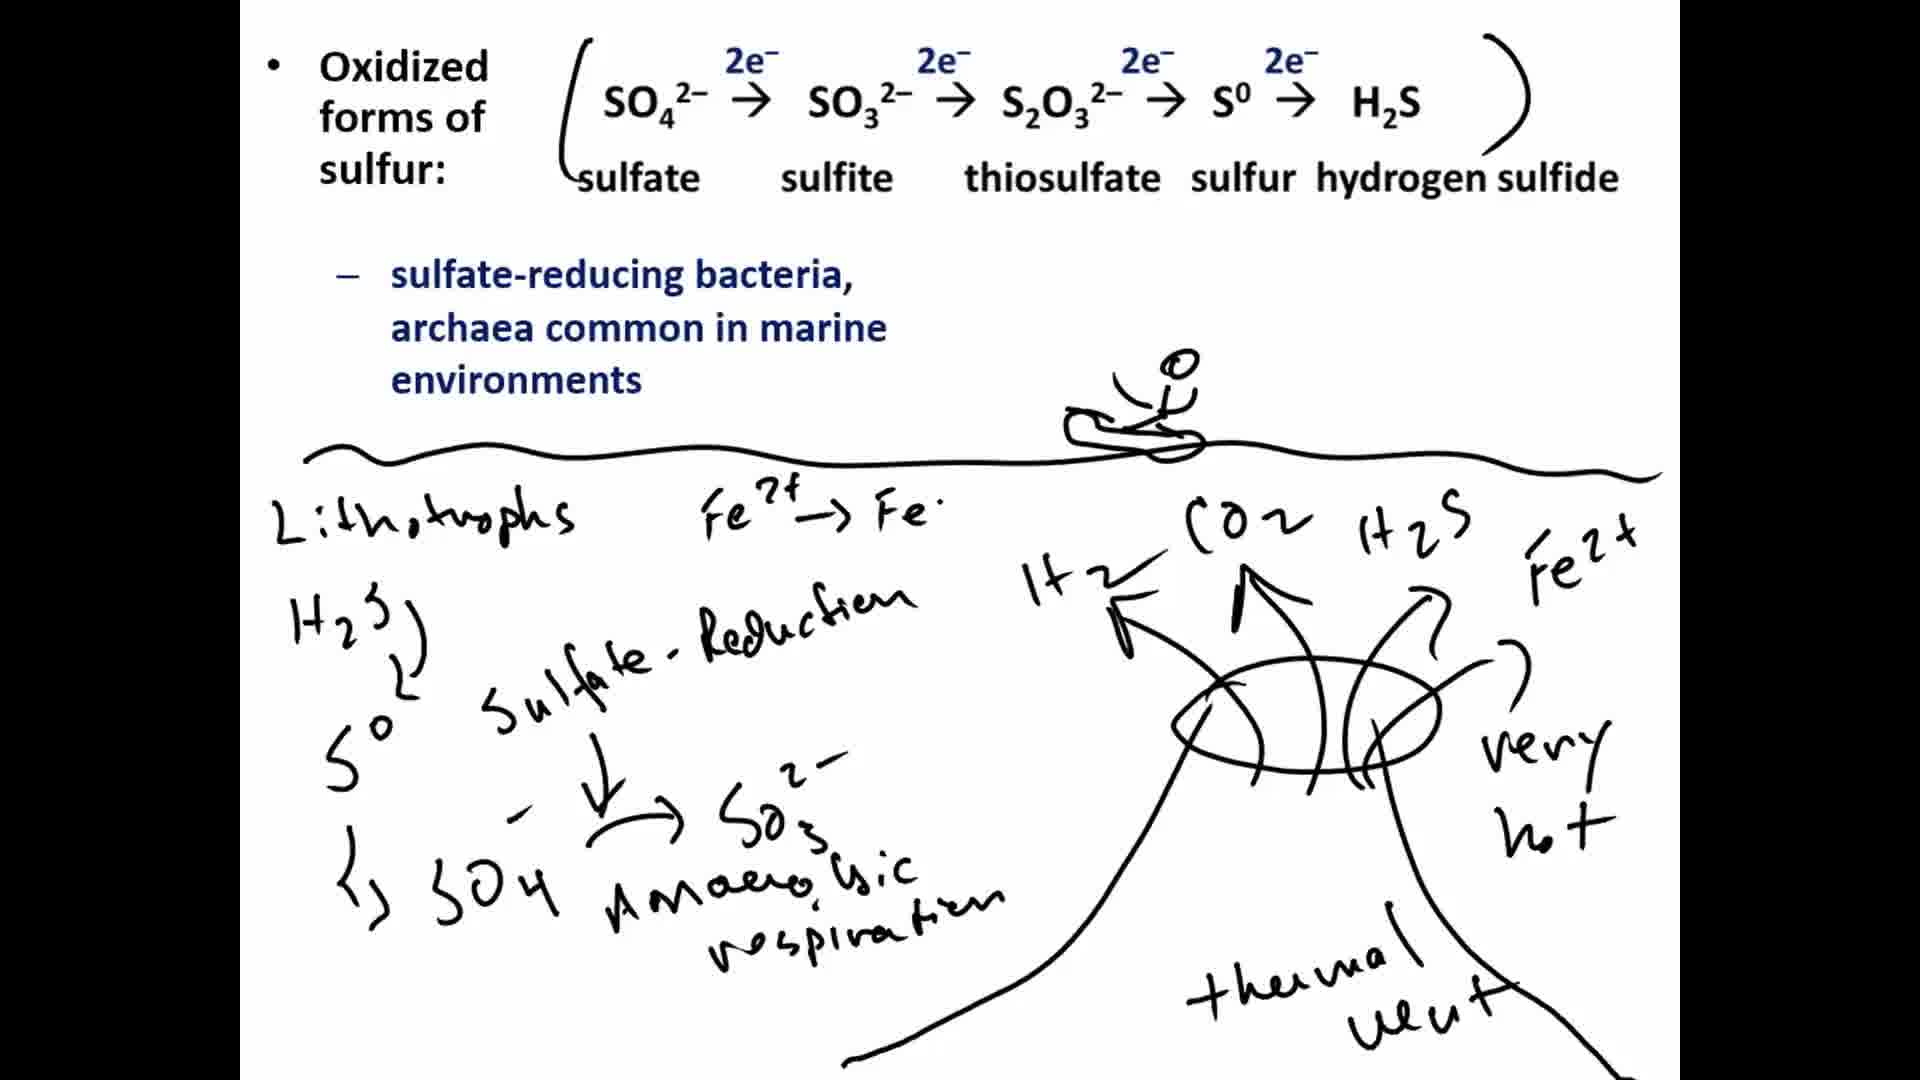 • Oxidized forms of sulfur:
2e⁻ 2e⁻ 2e⁻ 2e⁻
SO₄²⁻ → SO₃²⁻ → S₂O₃²⁻ → S⁰ → H₂S
sulfate sulfite thiosulfate sulfur hydrogen sulfide
– sulfate-reducing bacteria,
archaea common in marine
environments
Lithotrophs
Fe²⁺ → Fe
H₂ CO₂ H₂S Fe²⁺
H₂S
Sulfate-Reduction
S⁰
SO₄⁻ → SO₃²⁻
Anaerobic
respiration
very
hot
thermal
vent